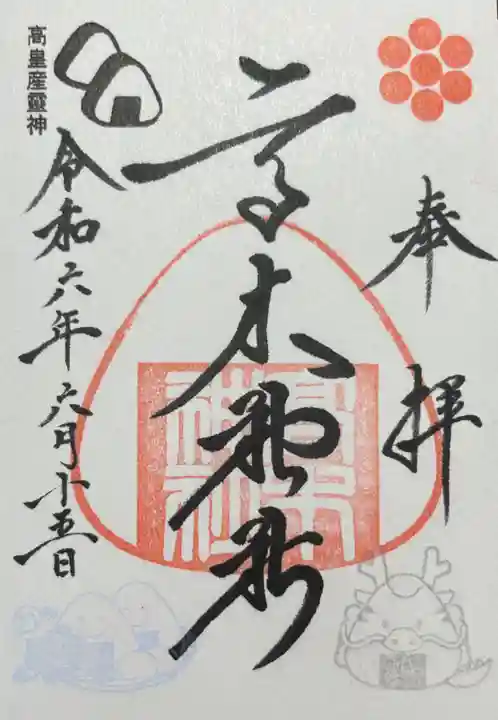 奉拝
高木神社
高木神社
高皇産靈神
令和六年六月十五日